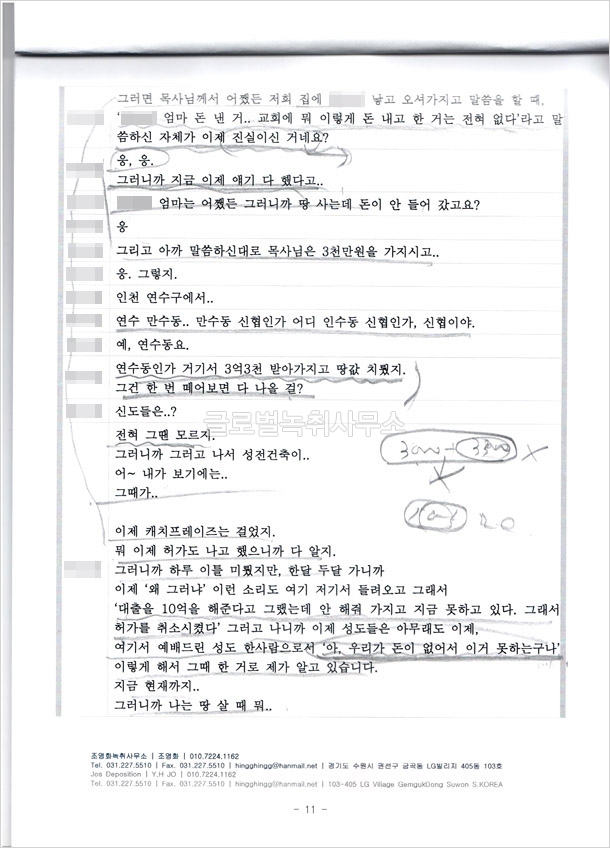 그러면 목사님께서 어쨌든 저희 집에 낳고 오셔가지고 말씀을 할 때,
' 엄마 돈 낸 거.. 교회에 뭐 이렇게 돈 내고 한 거는 전혀 없다'라고 말
씀하신 자체가 이제 진실이신 거네요?
응, 응.
그러니까 지금 이제 얘기 다 했다고..
엄마는 어쨌든 그러니까 땅 사는데 돈이 안 들어 갔고요?
응
그리고 아까 말씀하신대로 목사님은 3천만원을 가지시고..
응. 그렇지.
인천 연수구에서..
연수 만수동.. 만수동 신협인가 어디 인수동 신협인가, 신협이야.
예, 연수동요.
연수동인가 거기서 3억3천 받아가지고 땅값 치뤘지.
그건 한 번 떼어보면 다 나올 걸?
신도들은..?
글로벌녹취사무소
전혀 그땐 모르지.
그러니까 그리고 나서 성전건축이..
어~ 내가 보기에는..
그때가..
이제 캐치프레이즈는 걸었지.
뭐 이제 허가도 나고 했으니까 다 알지.
그러니까 하루 이틀 미뤘지만, 한달 두달 가니까
이제 '왜 그러냐' 이런 소리도 여기 저기서 들려오고 그래서
'대출을 10억을 해준다고 그랬는데 안 해줘 가지고 지금 못하고 있다. 그래서
허가를 취소시켰다' 그러고 나니까 이제 성도들은 아무래도 이제,
여기서 예배드린 성도 한사람으로서 '아, 우리가 돈이 없어서 이거 못하는구나'
이렇게 해서 그때 한 거로 제가 알고 있습니다.
지금 현재까지..
그러니까 나는 땅 살 때 뭐..
조영화녹취사무소 | 조영화 | 010.7224.1162
Tel. 031.227.5510 | Fax. 031.227.5510 | hingghingg@hanmail.net | 경기도 수원시 권선구 금곡동 LG빌리지 405동 103호
Jos Deposition | Y.H JO | 010.7224.1162
Tel. 031.227.5510 | Fax. 031.227.5510 | hingghingg@hanmail.net | 103-405 LG Village GemgukDong Suwon S.KOREA
- 11 -